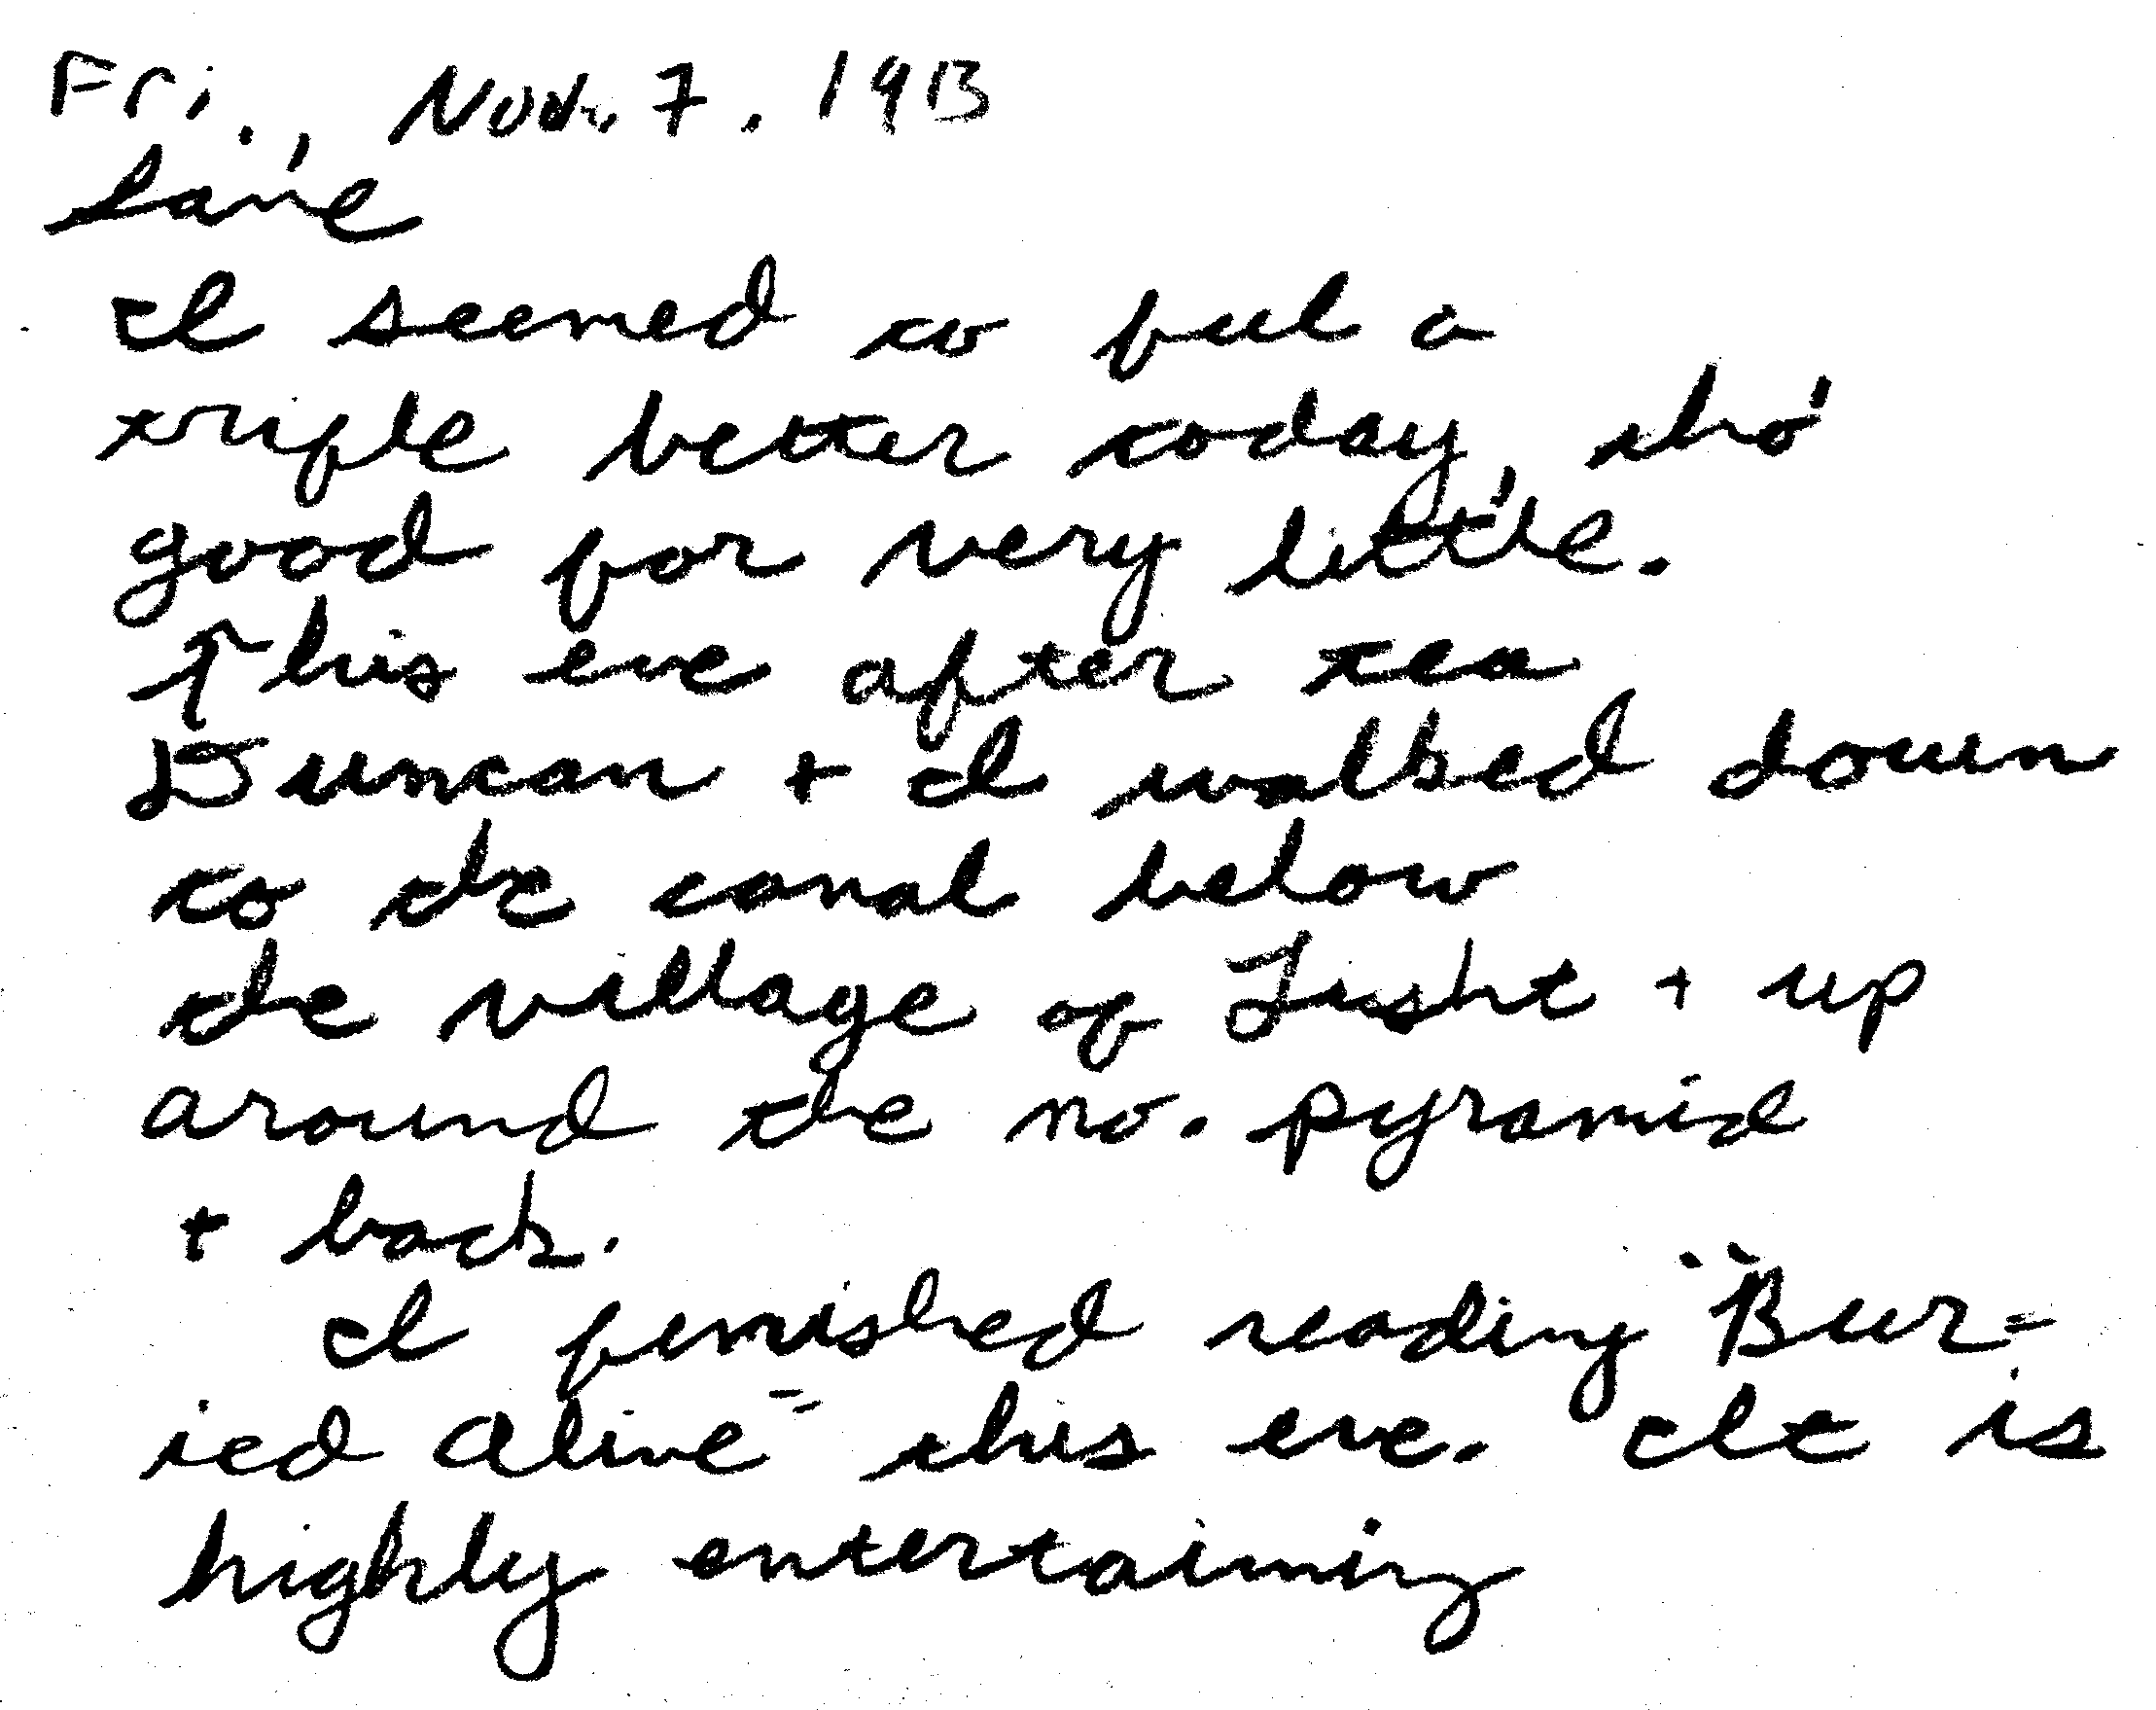 Fri., Nov. 7. 1913
Fair
I seemed to feel a
trifle better today, tho'
good for very little.
This eve after tea
Duncan + I walked down
to the canal below
the village of Lisht + up
around the no. pyramid
+ back.
I finished reading "Bur=
ied Alive" this eve. It is
highly entertaining